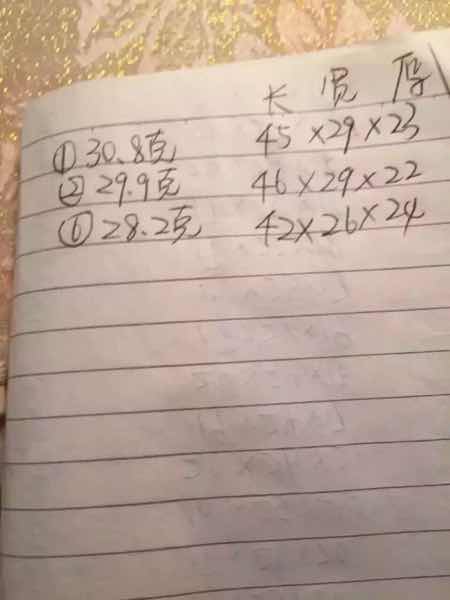 长 宽 厚
①30.8克 45×29×23
②29.9克 46×29×22
⑥28.2克 42×26×24